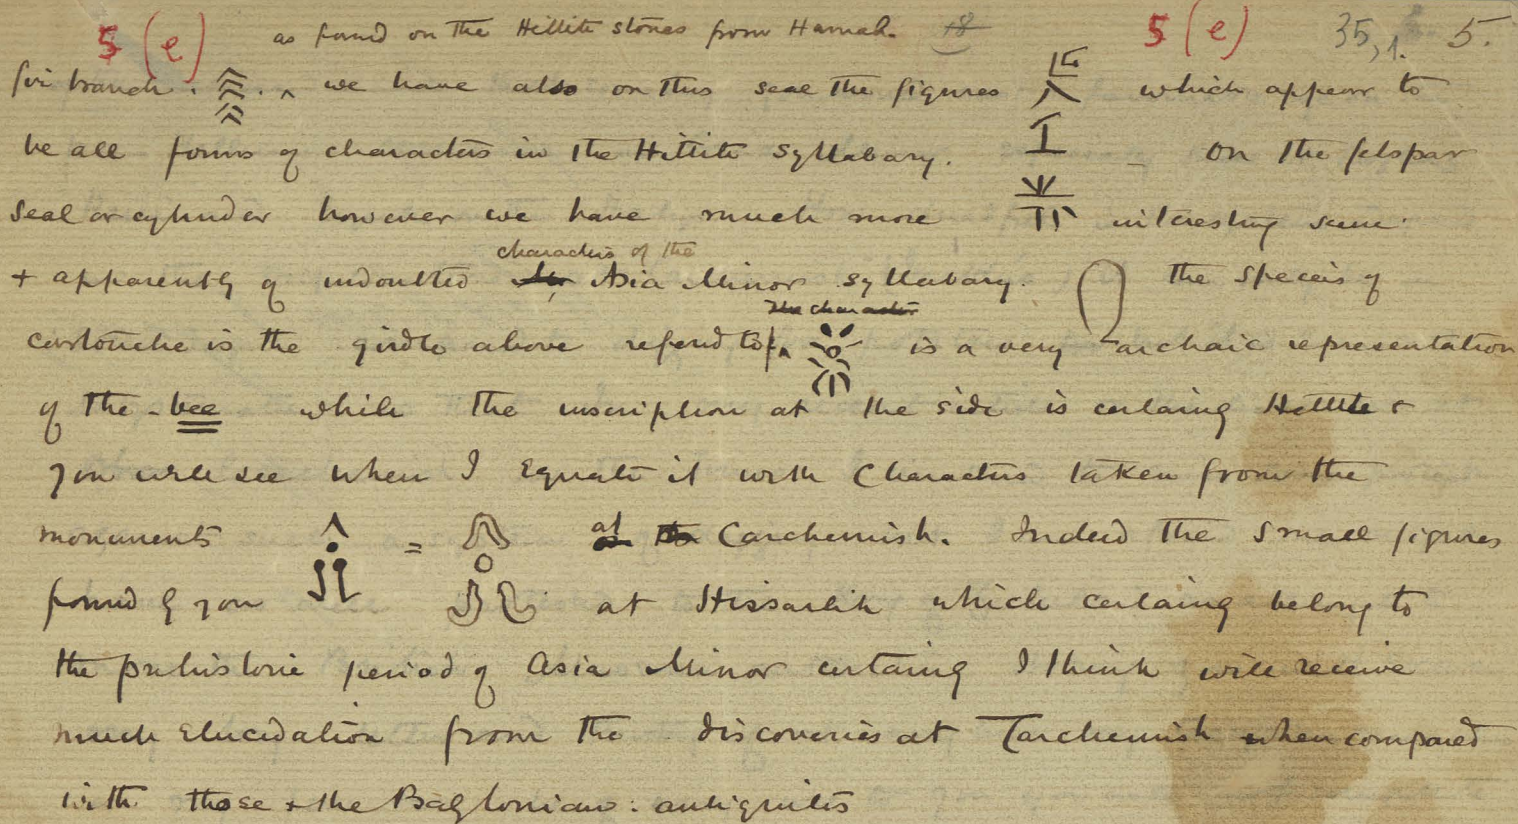 5 (e) as found on the Hittite stones from Hamah. 18 5 (e) 35,1. 5.
for branch. we have also on this seal the figures which appear to
be all forms of characters in the Hittite syllabary. – On the felspar
seal or cylinder however we have much more interesting scene
+ apparently of undoubted characters of the Asia Minor syllabary. The species of
cartouche is the girdle above referd to. The character is a very archaic representation
of the bee while the inscription at the side is certainly Hittite &
you will see when I equate it with characters taken from the
monuments = at Carchemish. Indeed the small figures
found by you at Hissarlik which certainly belong to
the prehistoric period of Asia Minor certainly I think will receive
much elucidation from the discoveries at Carchemish when compared
with those & the Babylonian antiquities